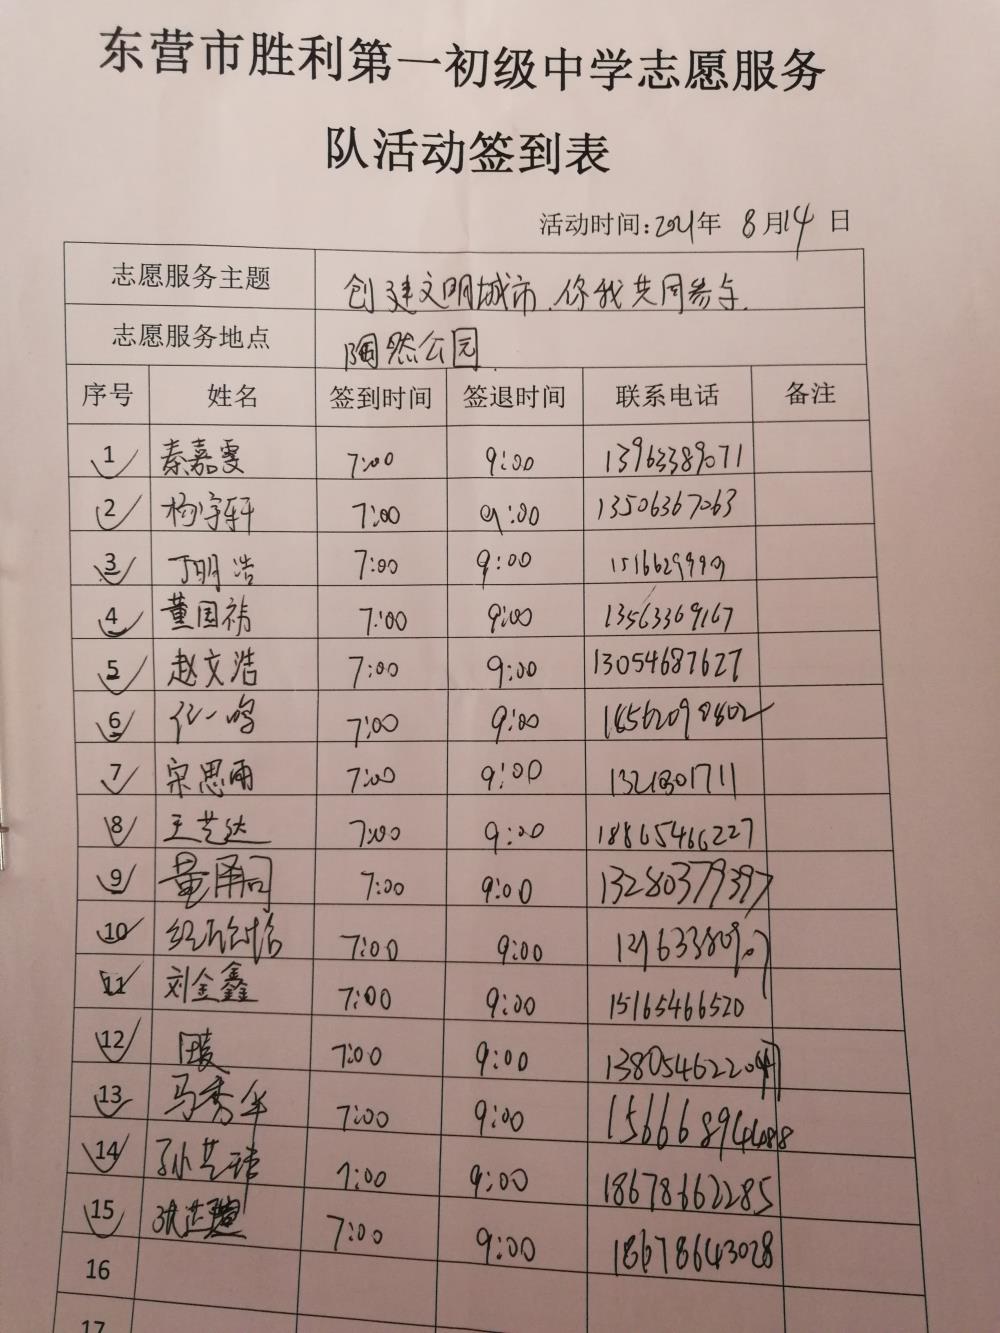 东营市胜利第一初级中学志愿服务
队活动签到表
活动时间:2021年 8月14日
志愿服务主题 创建文明城市.你我共同参与.
志愿服务地点 陶然公园
序号 姓名 签到时间 签退时间 联系电话 备注
1 秦嘉雯 7:00 9:00 13963389071
2 杨宇轩 7:00 9:00 13506367063
3 丁明浩 7:00 9:00
4 董国祎 7:00 9:00 13563369167
5 赵文浩 7:00 9:00 13054687627
6 任一鸣 7:00 9:00
7 宋思雨 7:00 9:00
8 王艺达 7:00 9:00 18865466227
9 7:00 9:00 13280379397
10 7:00 9:00
11 刘金鑫 7:00 9:00 15165466520
12 7:00 9:00
13 马秀华 7:00 9:00
14 孙艺 7:00 9:00 18678662285
15 7:00 9:00 18678643028
16
17